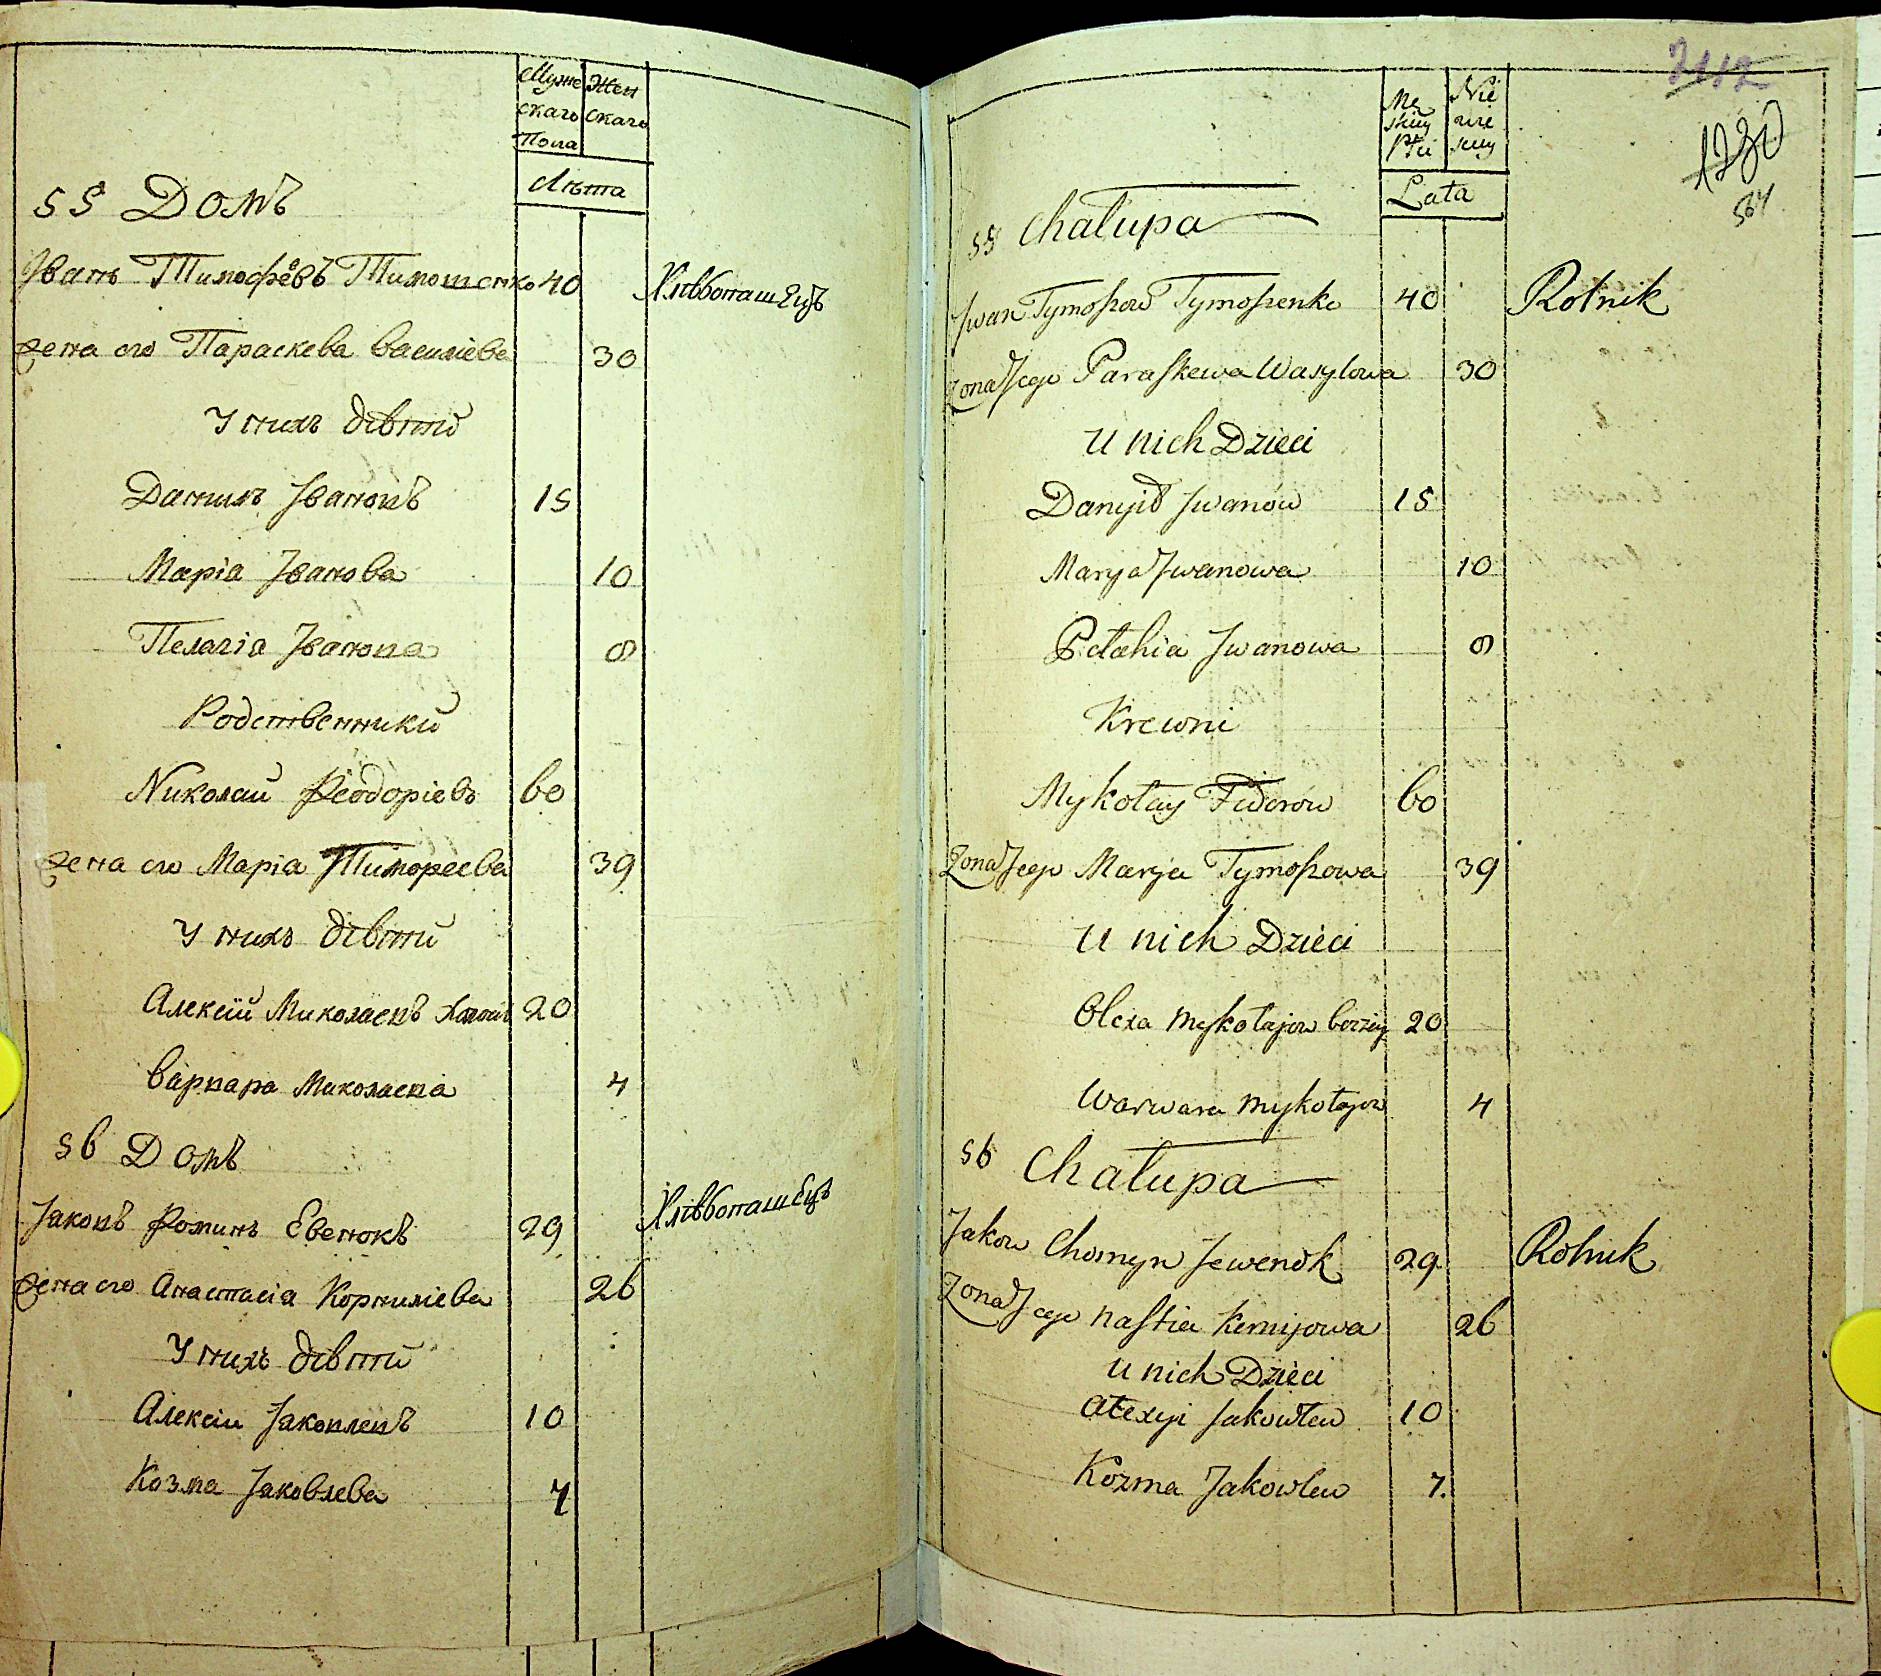 Муже Жен
скаго скаго
Пола
Лѣта
55 Домъ
Іванъ Тимофѣевъ Тимошенко 40 Хлѣбопашецъ
жена его Параскева Василіева 30
У нихъ дѣтей
Даниилъ Івановъ 15
Марія Іванова 10
Пелагія Іванова 8
Родственники
Николай Феодоріевъ 60
жена его Марія Тимофеева 39
У нихъ дѣтей
Алексій Миколаевъ 20
Варвара Миколаева 4
56 Домъ
Јаковъ Фоминъ Евенокъ 29 Хлѣбопашецъ
жена его Анастасіа Корниліева 26
У нихъ дѣтей
Алексій Јаковлевъ 10
Козма Јаковлева 7
2112
1280
564
Mę Nie
skiey wie
Płci skiey
Lata
55 Chałupa
Jwan Tymoszow Tymoszenko 40 Rolnik
Zona Jego Paraskewa Wasylowa 30
U nich Dzieci
Danyił Jwanów 15
Marya Jwanowa 10
Pełahia Jwanowa 8
Krewni
Mykołay Fedorów 60
Zona Jego Marya Tymoszowa 39
U nich Dzieci
Olexa Mykołajow 20
Warwara Mykołajow 4
56 Chałupa
Jakow Chomyn Jewenok 29 Rolnik
Zona Jego Nastia Kernijowa 26
U nich Dzieci
Ałexyi Jakowlew 10
Kozma Jakowlew 7.